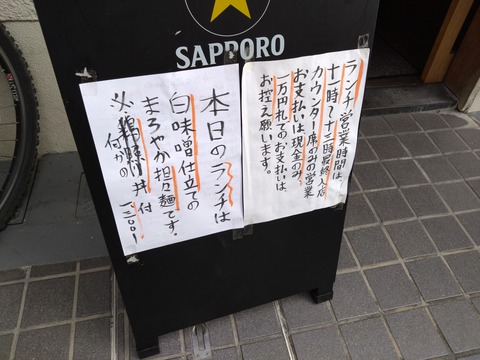 SAPPORO
ランチ営業時間は、
十時〜十三時最終入店
カウンター席のみの営業
お支払いは現金のみ。
一万円札でのお支払いは、
お控え願います。
本日のランチは
白味噌仕立ての
まろやか担々麺です。
※ 丼 付